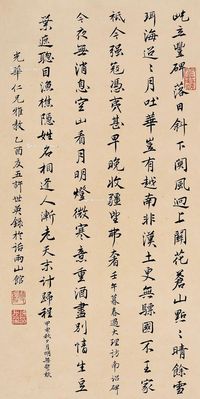 立豐碑落日斜下關風迴上關花蒼山點點晴餘雪
珥海迢迢月吐華豈有越南非漢土更無緜國不王家
祗今強寇馮甚早晚收疆望奢壬午暮春過大理訪南詔碑
今夜無消息空山看月明燈微寒意重酒盡別情生豆
葉聰目漁樵隱姓名相逢人漸老天末計歸程甲申秋夕月明
光華仁兄雅教乙酉夏五許世英錄於話雨山館